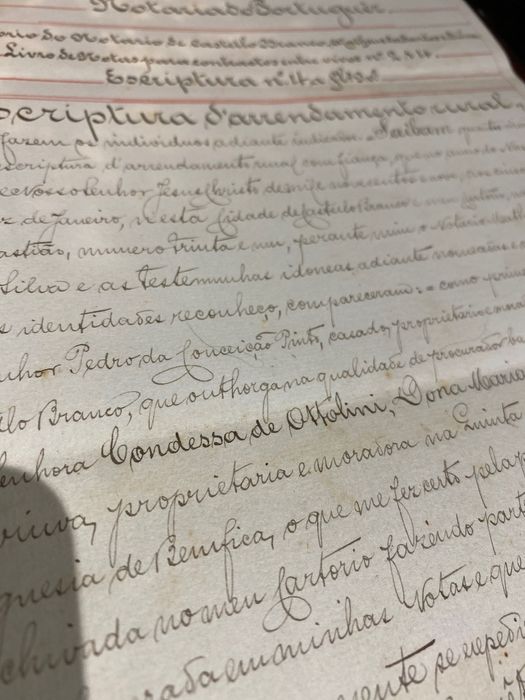 Notariado Portuguez.
orio do Notario de Castello Branco,
Livro de Notas para contractos entre vivos nº
Escriptura nº
scriptura d'arrendamento rural.
fazem os individuos adiante indicados. Saibam quantos
scriptura d'arrendamento rural com fiança, que no anno do
de Nosso Senhor Jesus Christo de mil e novecentos e nove, aos
de Janeiro, nesta Cidade de Castello Branco e meu Cartorio,
astião, numero trinta e um, perante mim o Notario
Silva e as testemunhas idoneas adiante nomeadas e
s identidades reconheço, compareceram: = como
nhor Pedro da Conceição Pinto, casado, proprietario e
llo Branco, que outhorga na qualidade de procurador
enhora Condessa de Ottolini, Dona Maria
viuva, proprietaria e moradora na Quinta
guesia de Bemfica, o que me fez certo pela
chivada no meu Cartorio fazendo parte
rada em minhas Notas e que
mente se expedi